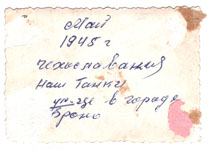 Май
1945 г
Чехаславакия
наш Танки
в городе
Броно